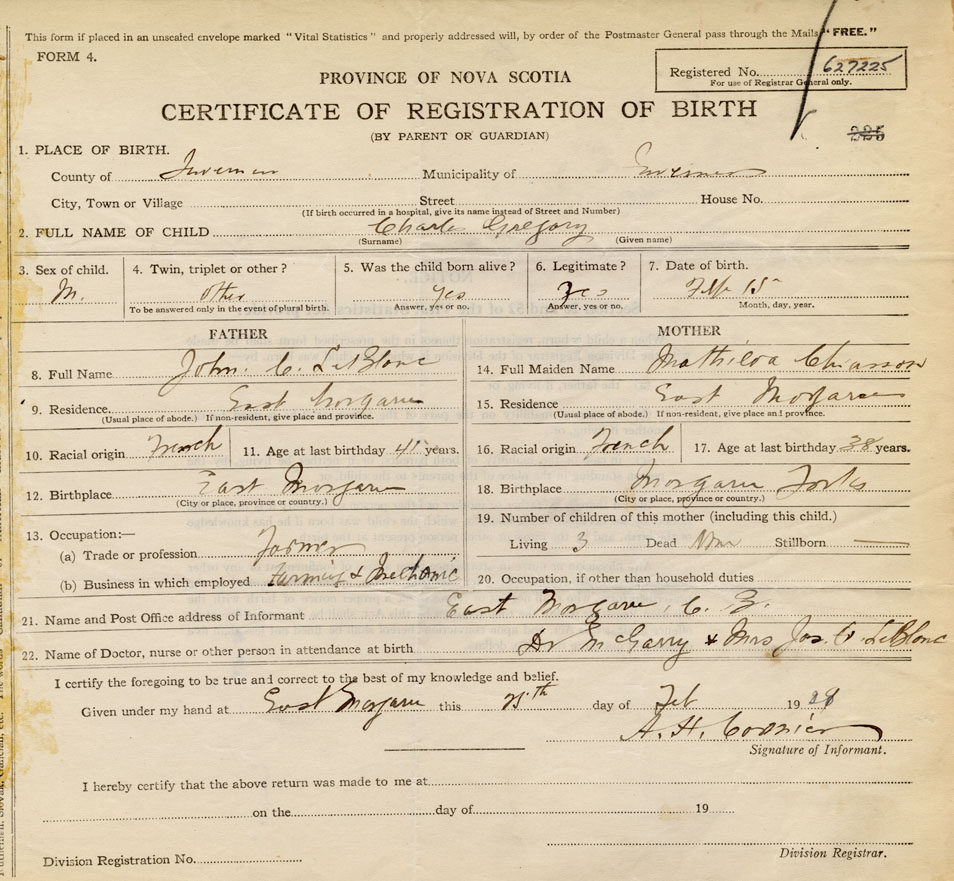 This form if placed in an unsealed envelope marked "Vital Statistics" and properly addressed will, by order of the Postmaster General pass through the Mails "FREE."
FORM 4.
Registered No. 627225
For use of Registrar General only.
PROVINCE OF NOVA SCOTIA
CERTIFICATE OF REGISTRATION OF BIRTH
(BY PARENT OR GUARDIAN)
225
1. PLACE OF BIRTH.
County of Inverness Municipality of Inverness
City, Town or Village Street House No.
(If birth occurred in a hospital, give its name instead of Street and Number)
2. FULL NAME OF CHILD Charles Gregory
(Surname) (Given name)
3. Sex of child. 4. Twin, triplet or other? 5. Was the child born alive? 6. Legitimate? 7. Date of birth.
M. other yes yes Feb 15
To be answered only in the event of plural birth. Answer, yes or no. Answer, yes or no. Month, day, year.
FATHER MOTHER
8. Full Name John. C. LeBlanc 14. Full Maiden Name Mathilda Chiasson
9. Residence. East Margaree 15. Residence East Margaree
(Usual place of abode.) If non-resident, give place and province. (Usual place of abode.) If non-resident, give place and province.
10. Racial origin French 11. Age at last birthday 41 years. 16. Racial origin French 17. Age at last birthday 38 years.
12. Birthplace East Margaree 18. Birthplace Margaree Forks
(City or place, province or country.) (City or place, province or country.)
13. Occupation:— 19. Number of children of this mother (including this child.)
(a) Trade or profession Farmer Living 3 Dead Stillborn —
(b) Business in which employed Farming & Mechanic 20. Occupation, if other than household duties
21. Name and Post Office address of Informant East Margaree, C. B.
22. Name of Doctor, nurse or other person in attendance at birth Dr McGarry & Mrs Jos LeBlanc
I certify the foregoing to be true and correct to the best of my knowledge and belief.
Given under my hand at East Margaree this day of Feb 19
A. H. Cormier
Signature of Informant.
I hereby certify that the above return was made to me at
on the day of 19
Division Registration No.
Division Registrar.